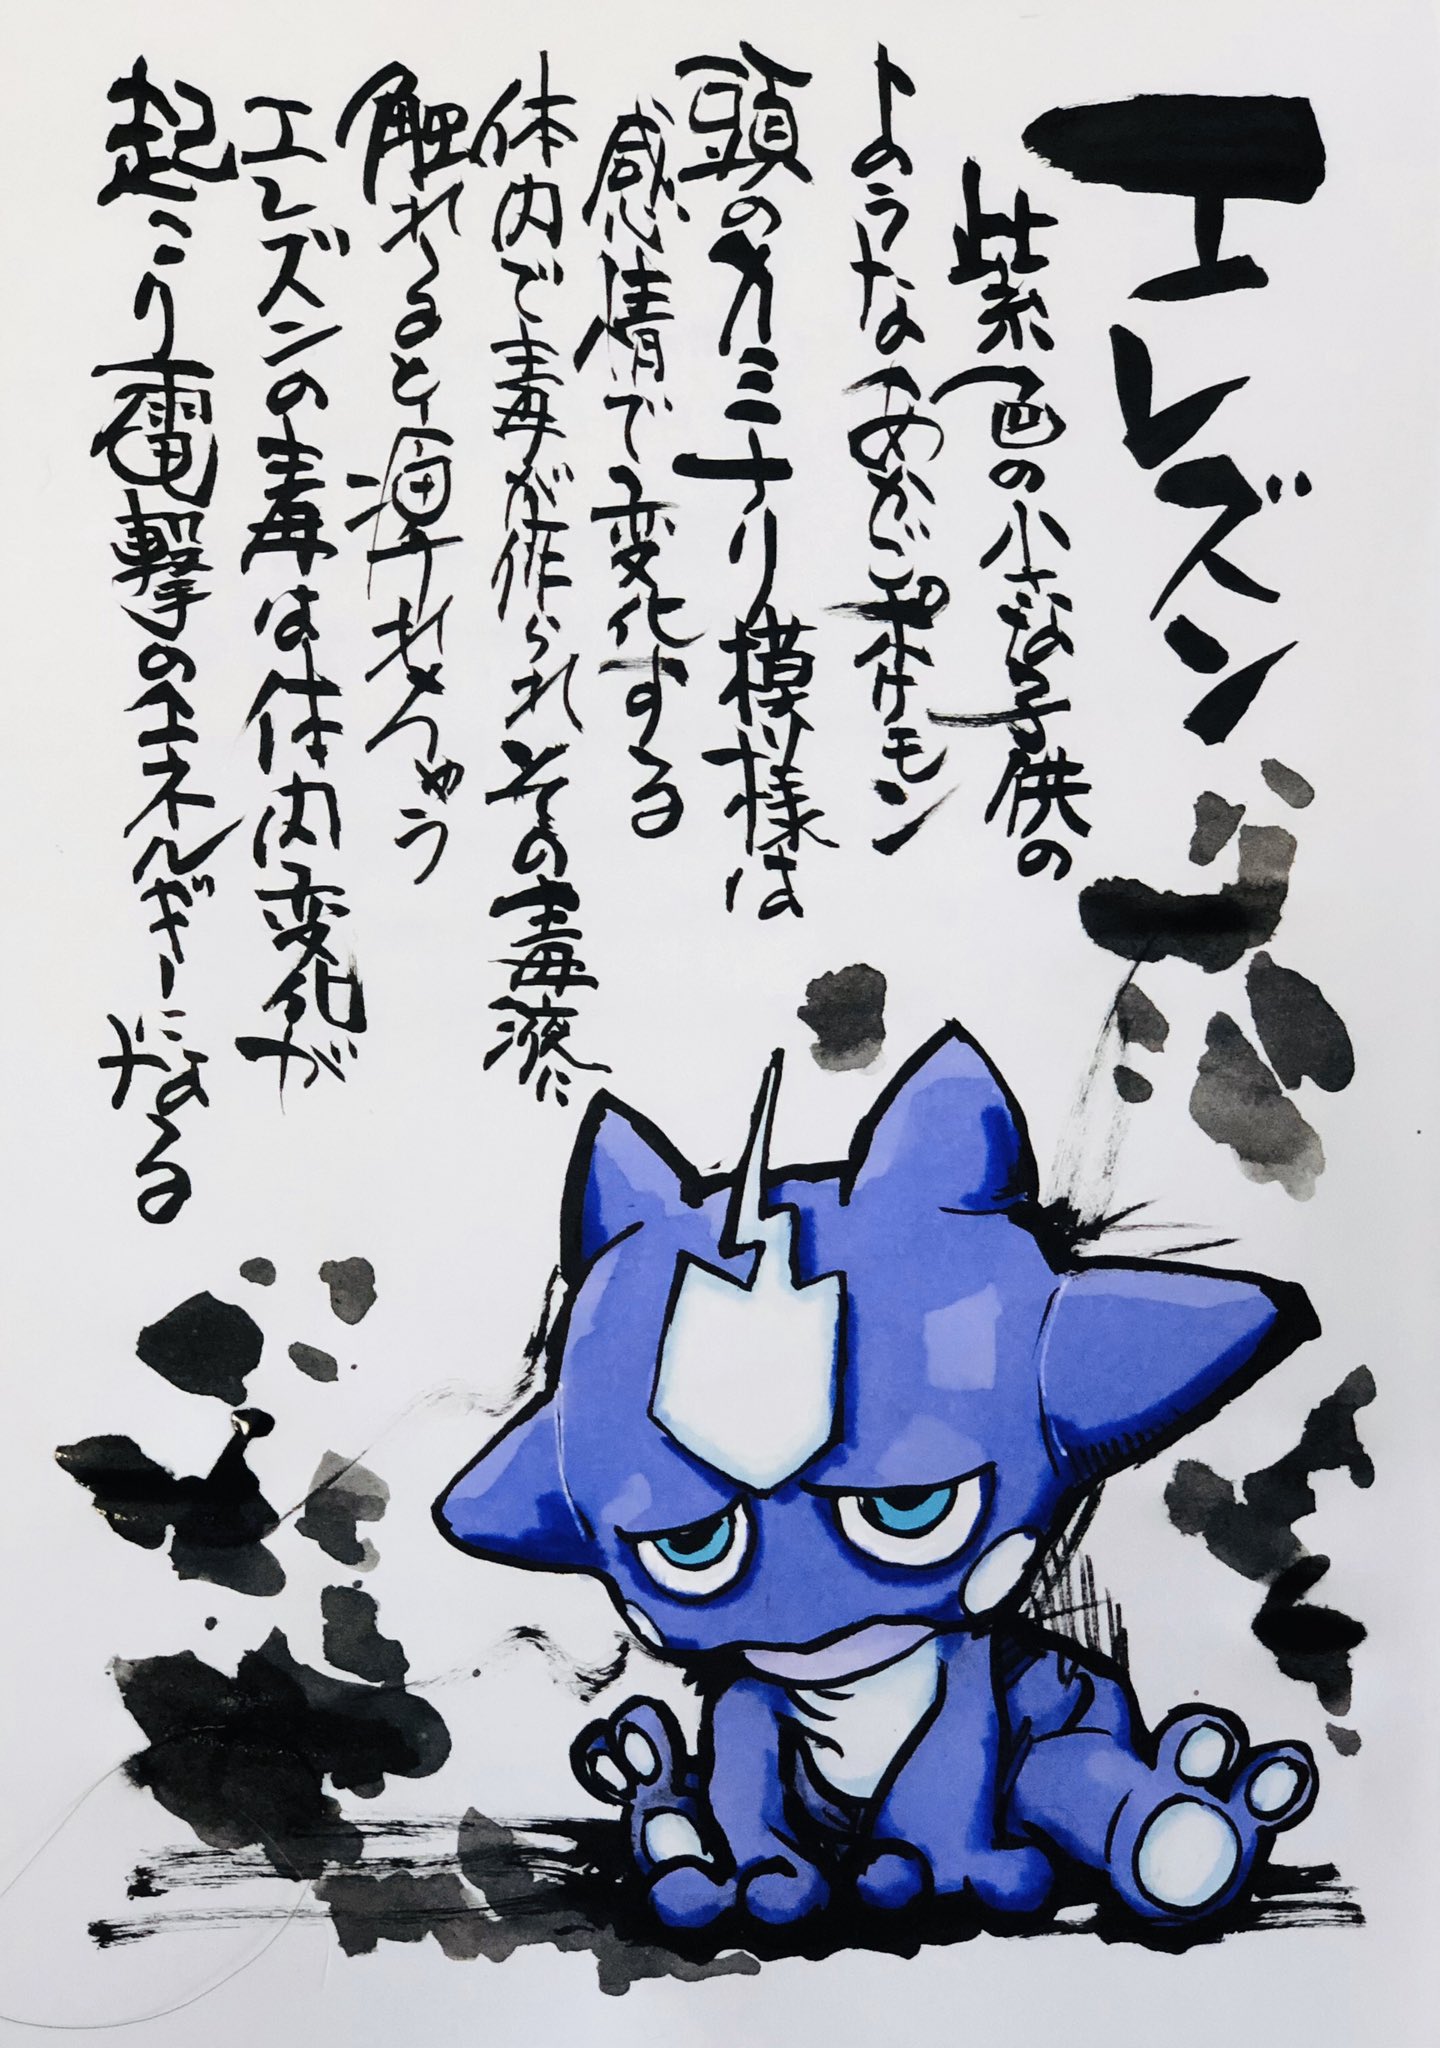 エレズン
紫色の小さな子供の
ようなあかごポケモン
頭のカミナリ模様は
感情で変化する
体内で毒が作られその毒液に
触れると痺れちゃう
エレズンの毒は体内変化が
起こり電撃のエネルギーになる